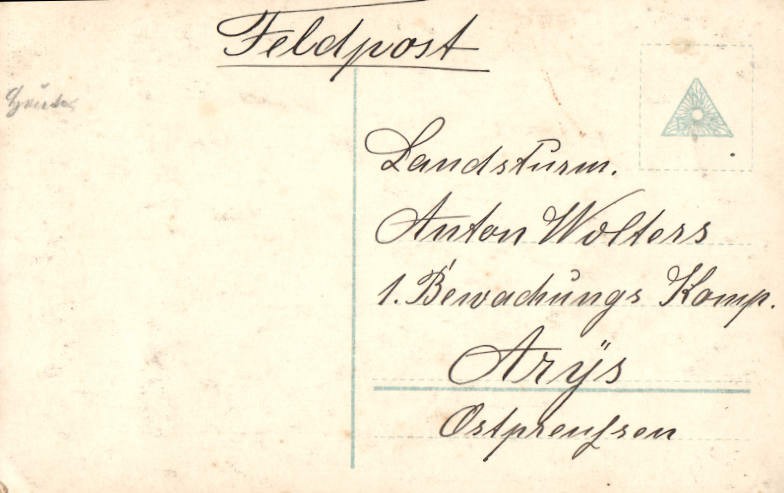 Feldpost
Landsturm.
Anton Wolters
1. Bewachungs Komp.
Arÿs
Ostpreuſsen